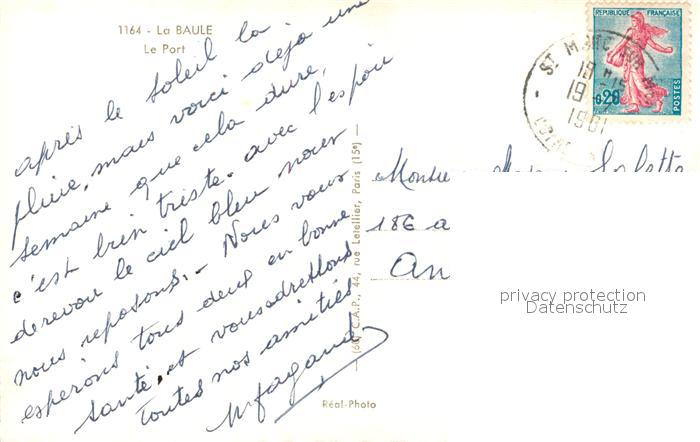 1164 - La BAULE
Le Port
après le soleil la
pluie, mais voici déjà une
semaine que cela dure,
c'est bien triste. avec l'espoir
de revoir le ciel bleu nous
nous reposons. - Nous vous
espérons tous deux en bonne
santé, et vous adressons
toutes nos amitiés
(60) C.A.P., 44, rue Letellier, Paris (15e)
Réal-Photo
REPUBLIQUE FRANÇAISE
0,20
POSTES
ST MARC
19
1961
186 a
An
privacy protection
Datenschutz